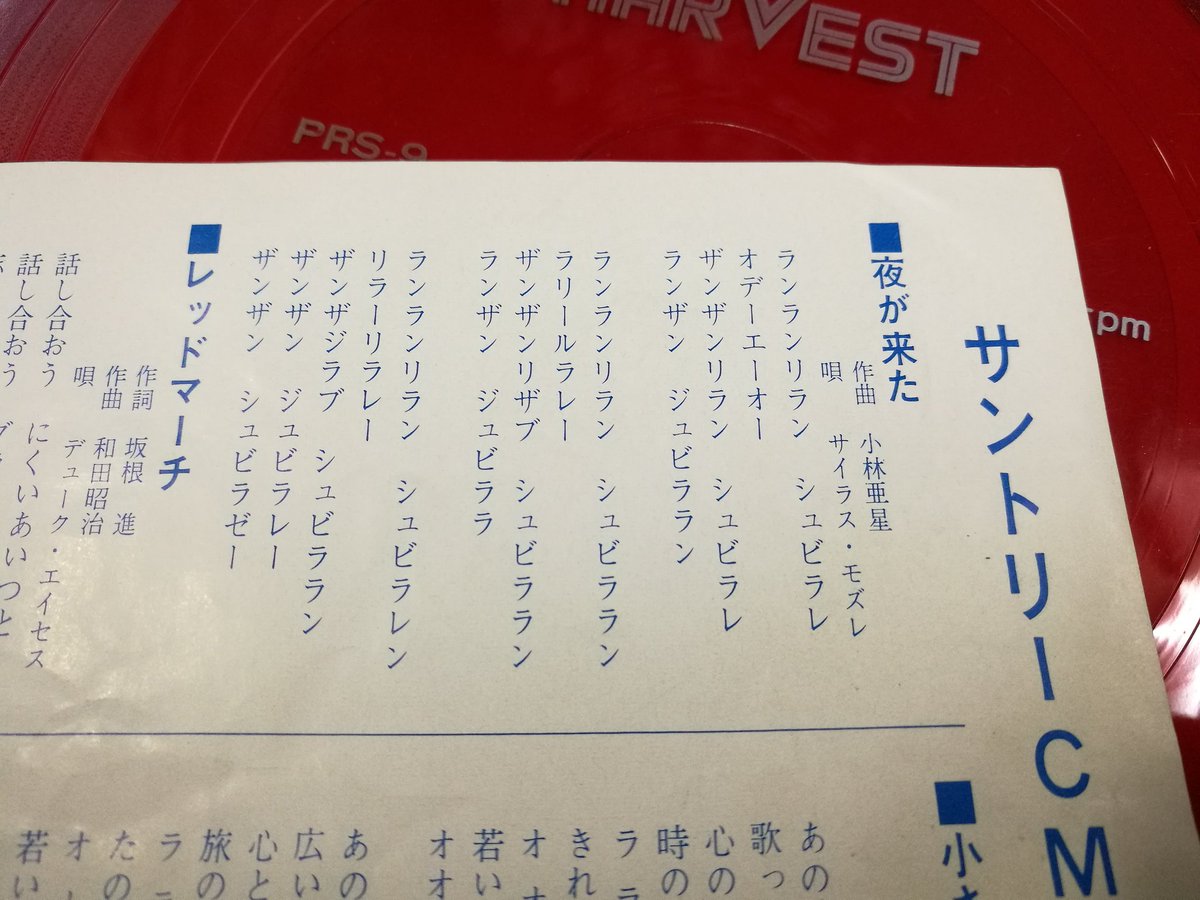 HARVEST
PRS-9
rpm
サントリーCM
■夜が来た
作曲 小林亜星
唄 サイラス・モズレ
ランランリラン シュビラレ
オデーエーオー
ザンザンリラン シュビラレ
ランザン ジュビララン
ランランリラン シュビララン
ラリールラレー
ザンザンリザブ シュビララン
ランザン ジュビララ
ランランリラン シュビラレン
リラーリラレー
ザンザジラブ シュビララン
ザンザン ジュビラレー
ザンザン シュビラゼー
■レッドマーチ
作詞 坂根 進
作曲 和田昭治
唄 デューク・エイセス
話し合おう にくいあいつと
話し合おう
■小さ
あの
歌っ
心の
時の
ララ
きれ
オオ
若い
オオ
あの
広い
心と
旅の
ラ
たの
オ
若い